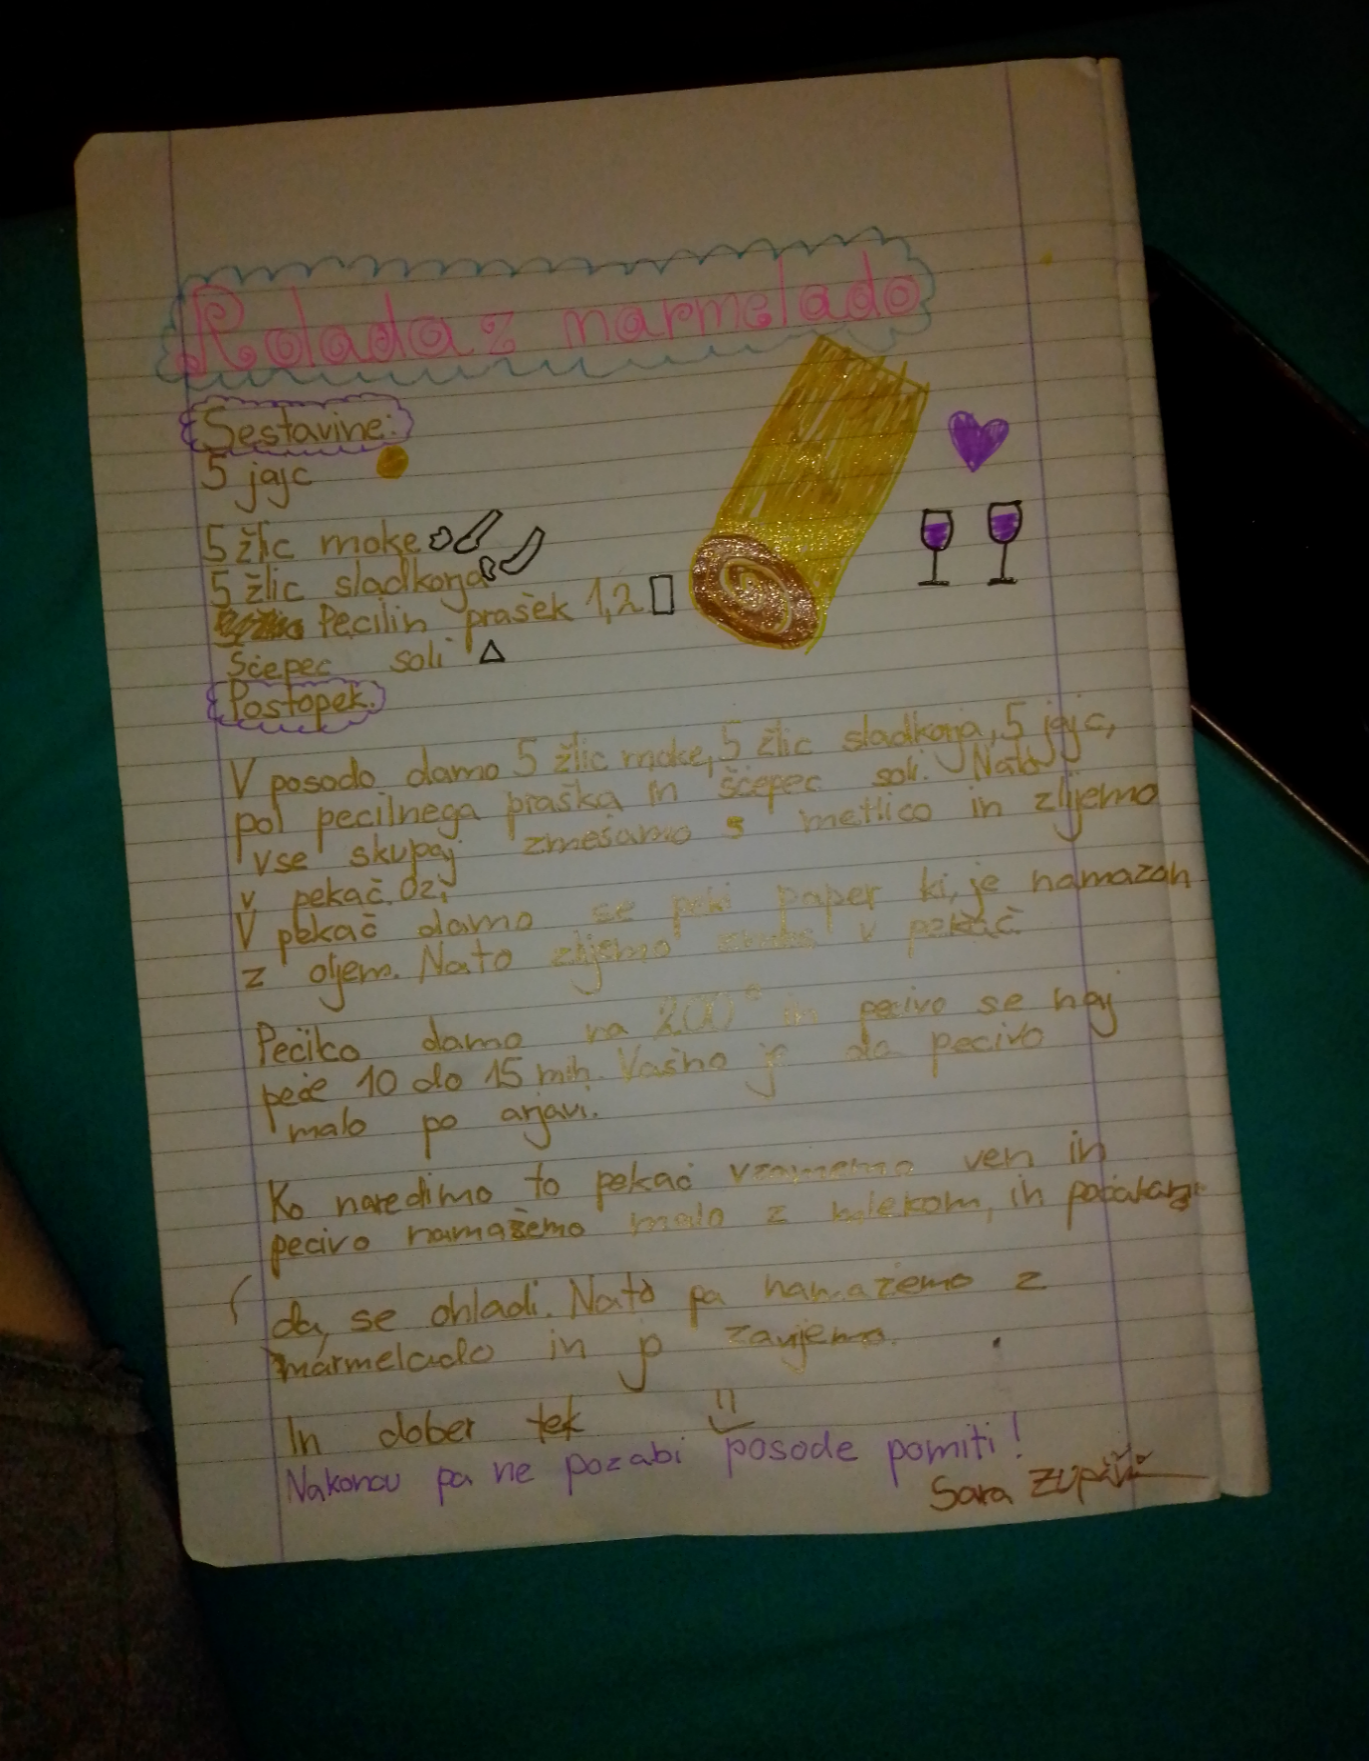 Rolada z marmelado
Sestavine:
5 jajc
5 žlic moke
5 žlic sladkorja
Pecilin prašek 1,2
Ščepec soli
Postopek:
V posodo damo 5 žlic moke, 5 žlic sladkorja, 5 jajc,
pol pecilnega praška in ščepec soli. Nato
vse skupaj zmešamo s metlico in zlijemo
v pekač. Ozi
V pekač damo se peki paper ki, je namazan
z oljem. Nato zlijemo v pekač
Pečico damo na 200° in pecivo se naj
peče 10 do 15 min. Vašno je da pecivo
malo po arjavi.
Ko naredimo to pekač vzamemo ven in
pecivo namažemo malo z mlekom, in počakamo
da, se ohladi. Nato pa namažemo z
marmelado in jo zavijemo.
In dober tek
Nakoncu pa ne pozabi posode pomiti!
Sara